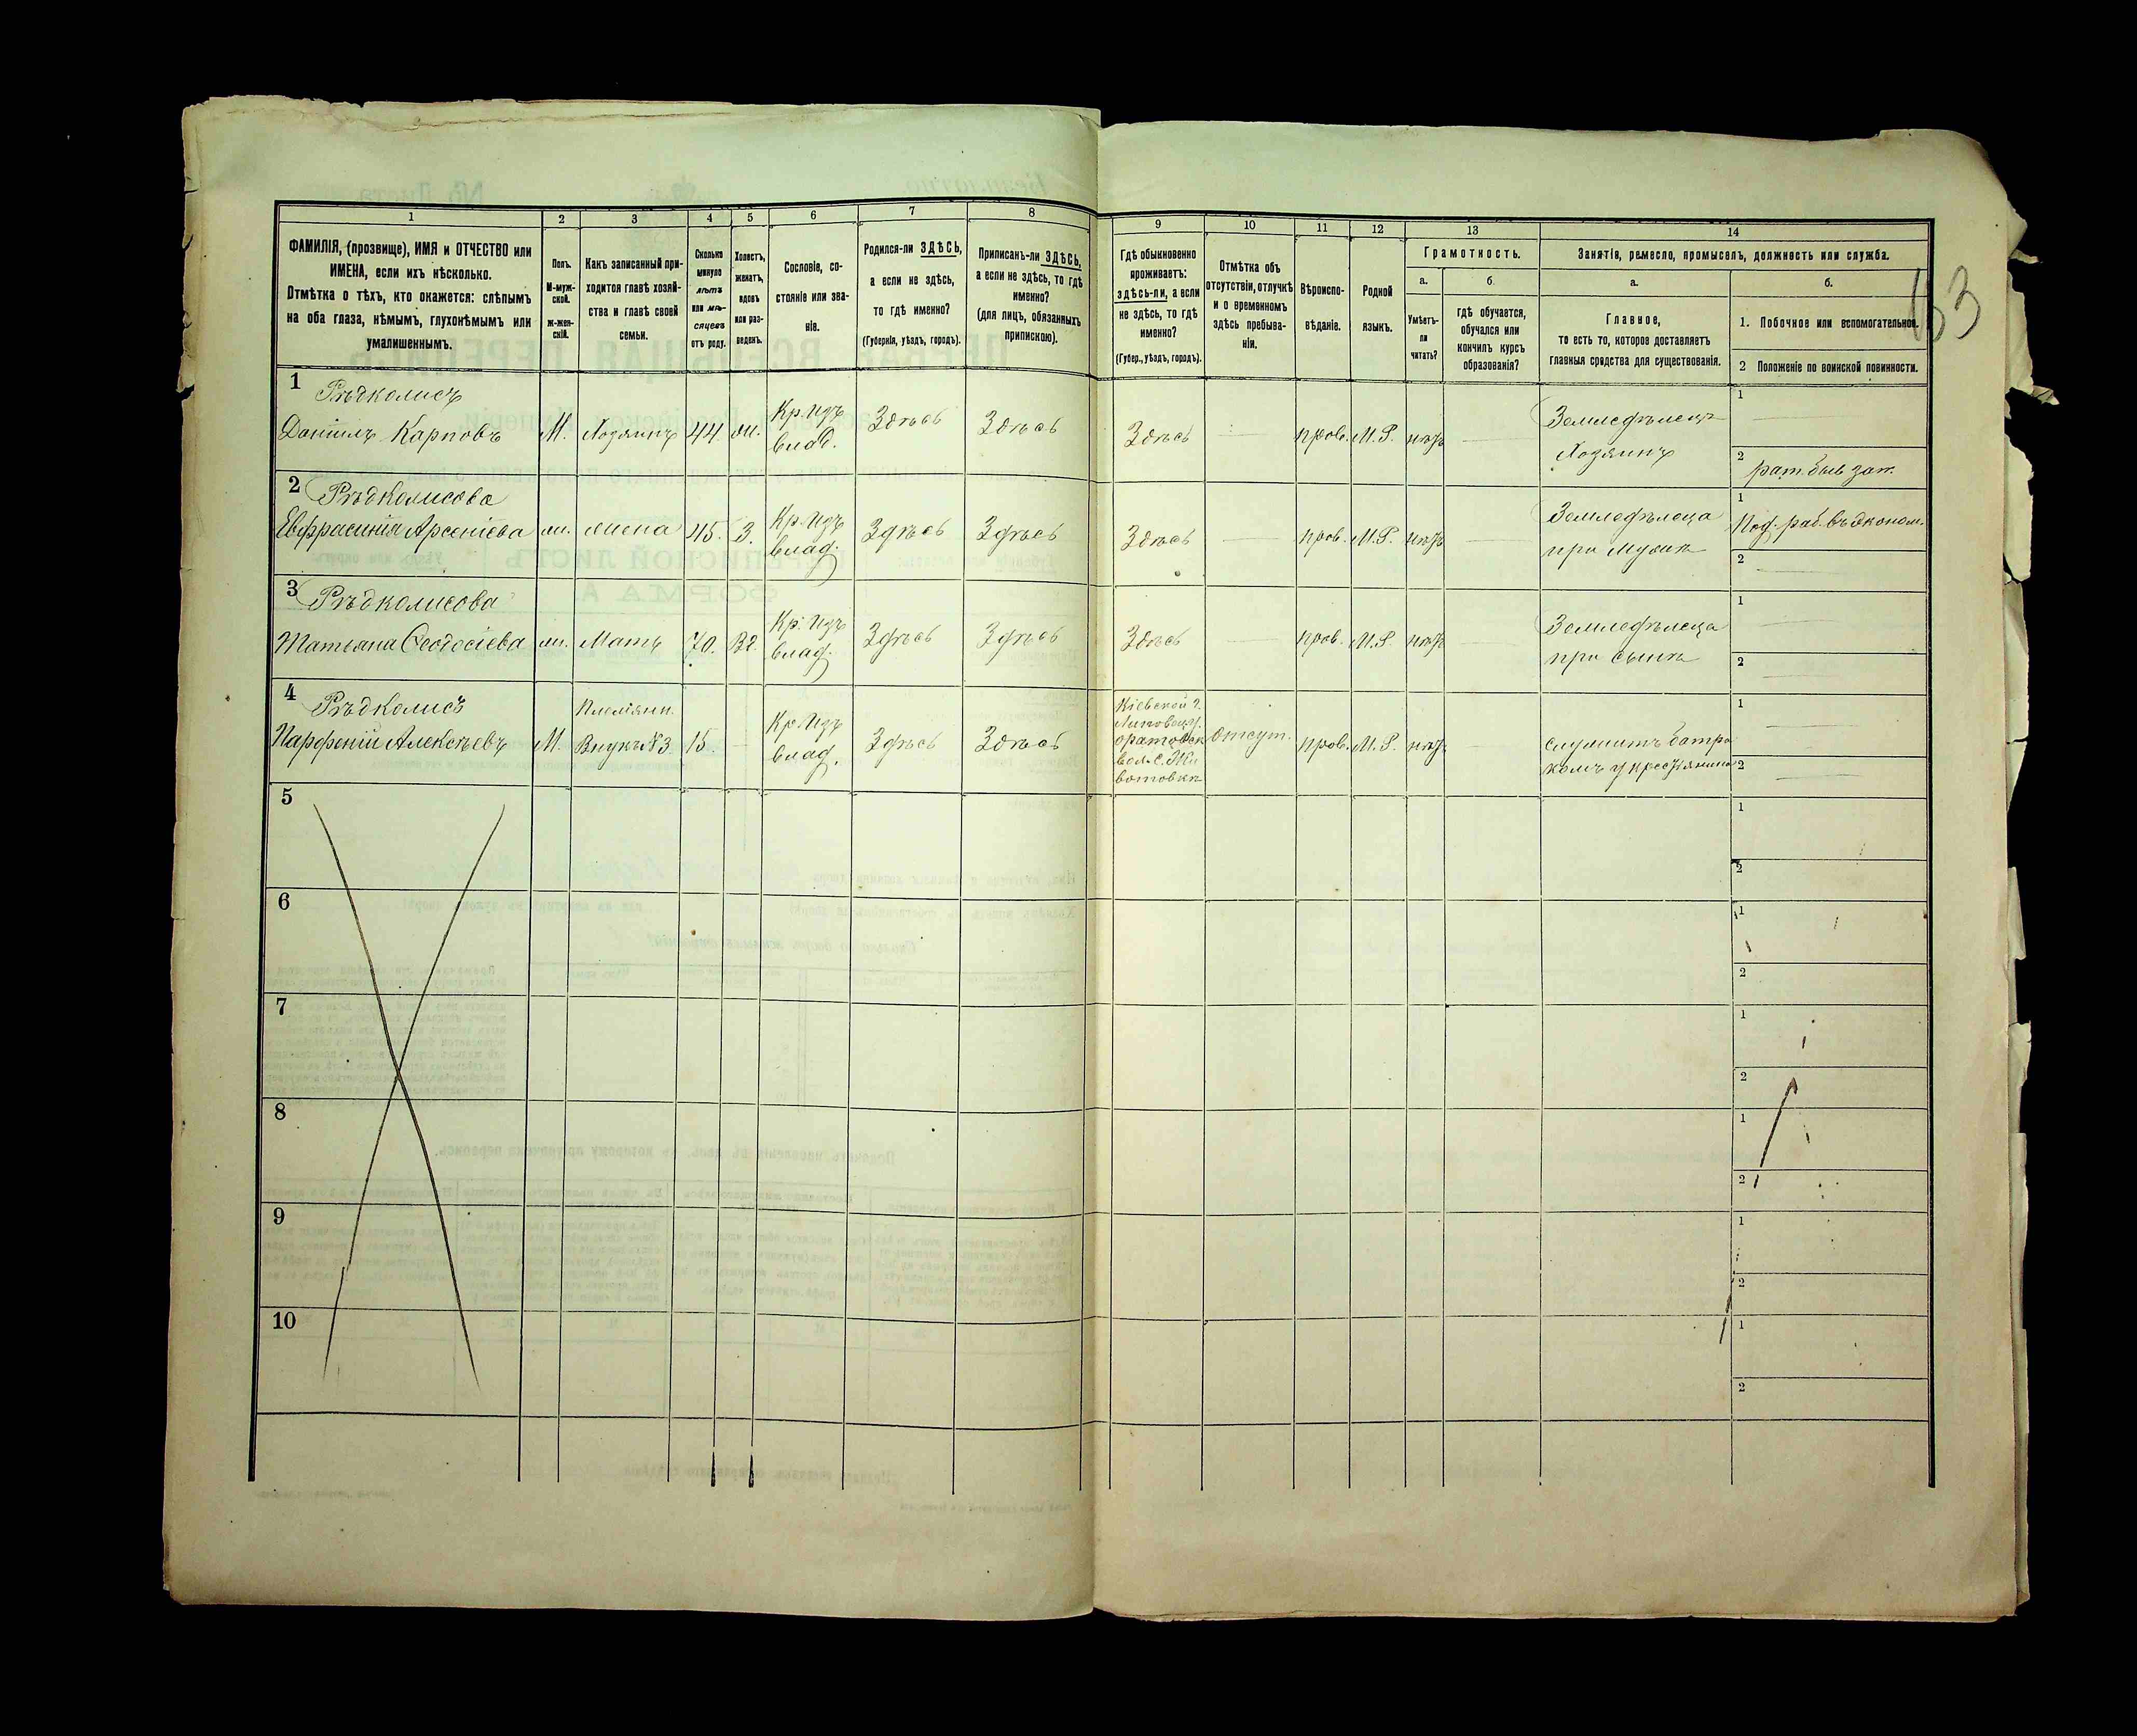 63
1 2 3 4 5 6 7 8 9 10 11 12 13 14
ФАМИЛІЯ, (прозвище), ИМЯ и ОТЧЕСТВО или
ИМЕНА, если ихъ нѣсколько.
Отмѣтка о тѣхъ, кто окажется: слѣпымъ
на оба глаза, нѣмымъ, глухонѣмымъ или
умалишеннымъ.
Полъ.
М-муж-
ской.
ж-жен-
скій.
Какъ записанный при-
ходится главѣ хозяй-
ства и главѣ своей
семьи.
Сколько
минуло
лѣтъ
или мѣ-
сяцевъ
отъ роду.
Холостъ,
женатъ,
вдовъ
или раз-
веденъ.
Сословіе, со-
стояніе или зва-
ніе.
Родился-ли ЗДѢСЬ,
а если не здѣсь,
то гдѣ именно?
(Губернія, уѣздъ, городъ).
Приписанъ-ли ЗДѢСЬ,
а если не здѣсь, то гдѣ
именно?
(для лицъ, обязанныхъ
припискою).
Гдѣ обыкновенно
проживаетъ:
здѣсь-ли, а если
не здѣсь, то гдѣ
именно?
(Губер., уѣздъ, городъ).
Отмѣтка объ
отсутствіи, отлучкѣ
и о временномъ
здѣсь пребыва-
ніи.
Вѣроиспо-
вѣданіе.
Родной
языкъ.
Грамотность.
а.
Умѣетъ-
ли
читать?
б.
гдѣ обучается,
обучался или
кончилъ курсъ
образованія?
Занятіе, ремесло, промыселъ, должность или служба.
а.
Главное,
то есть то, которое доставляетъ
главныя средства для существованія.
б.
1. Побочное или вспомогательное.
2 Положеніе по воинской повинности.
1 Рѣдколисъ
Даніилъ Карповъ М. Хозяинъ 44 ж. Кр. Изъ влад. Здѣсь Здѣсь Здѣсь прав. М.Р. нѣтъ Земледѣлецъ Хозяинъ
1
2 рат. быв зап.
2 Рѣдколисова
Евфрасинія Арсеніева ж. жена 45. З. Кр. Изъ влад. Здѣсь Здѣсь Здѣсь прав. М.Р. нѣтъ Земледѣлеца при мужѣ
1 Под. раб. въ эконом.
2
3 Рѣдколисова
Татьяна Ѳеодосіева ж. Мать 70. Вд. Кр. Изъ влад. Здѣсь Здѣсь Здѣсь прав. М.Р. нѣтъ Земледѣлеца при сынѣ
1
2
4 Рѣдколисъ
Парфеній Алексѣевъ М. Племянн. Внукъ №3 15. Кр. Изъ влад. Здѣсь Здѣсь
Кіевской г.
Липовец у.
оратовск
вол. с. Жи
вотовкѣ
отсут. прав. М.Р. нѣтъ
служитъ батра
комъ у крестьянина
1
2
5
1
2
6
1
2
7
1
2
8
1
2
9
1
2
10
1
2